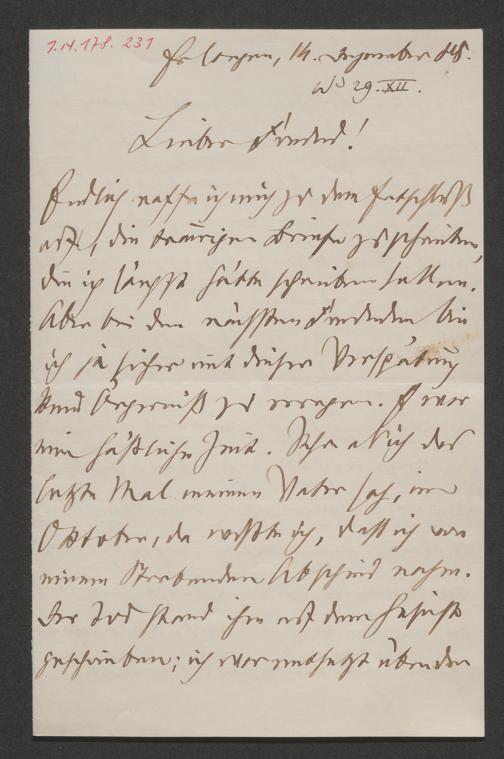 I.N.178.231
Erlangen, 14. Dezember 88.
29.XII.
Lieber Freund!
Endlich raffe ich mich zu dem Entschluß
auf, die traurigen Briefe zu schreiben,
die ich längst hätte schreiben sollen.
Aber bei den nächsten Freunden bin
ich ja sicher mit dieser Verspätung
kein Ärgerniß zu erregen. Es war
eine häßliche Zeit. Schon als ich das
letzte Mal meinen Vater sah, im
Oktober, da wußte ich, daß ich von
einem Sterbenden Abschied nahm.
Der Tod stand ihm auf dem Gesicht
geschrieben; ich war entsetzt über den